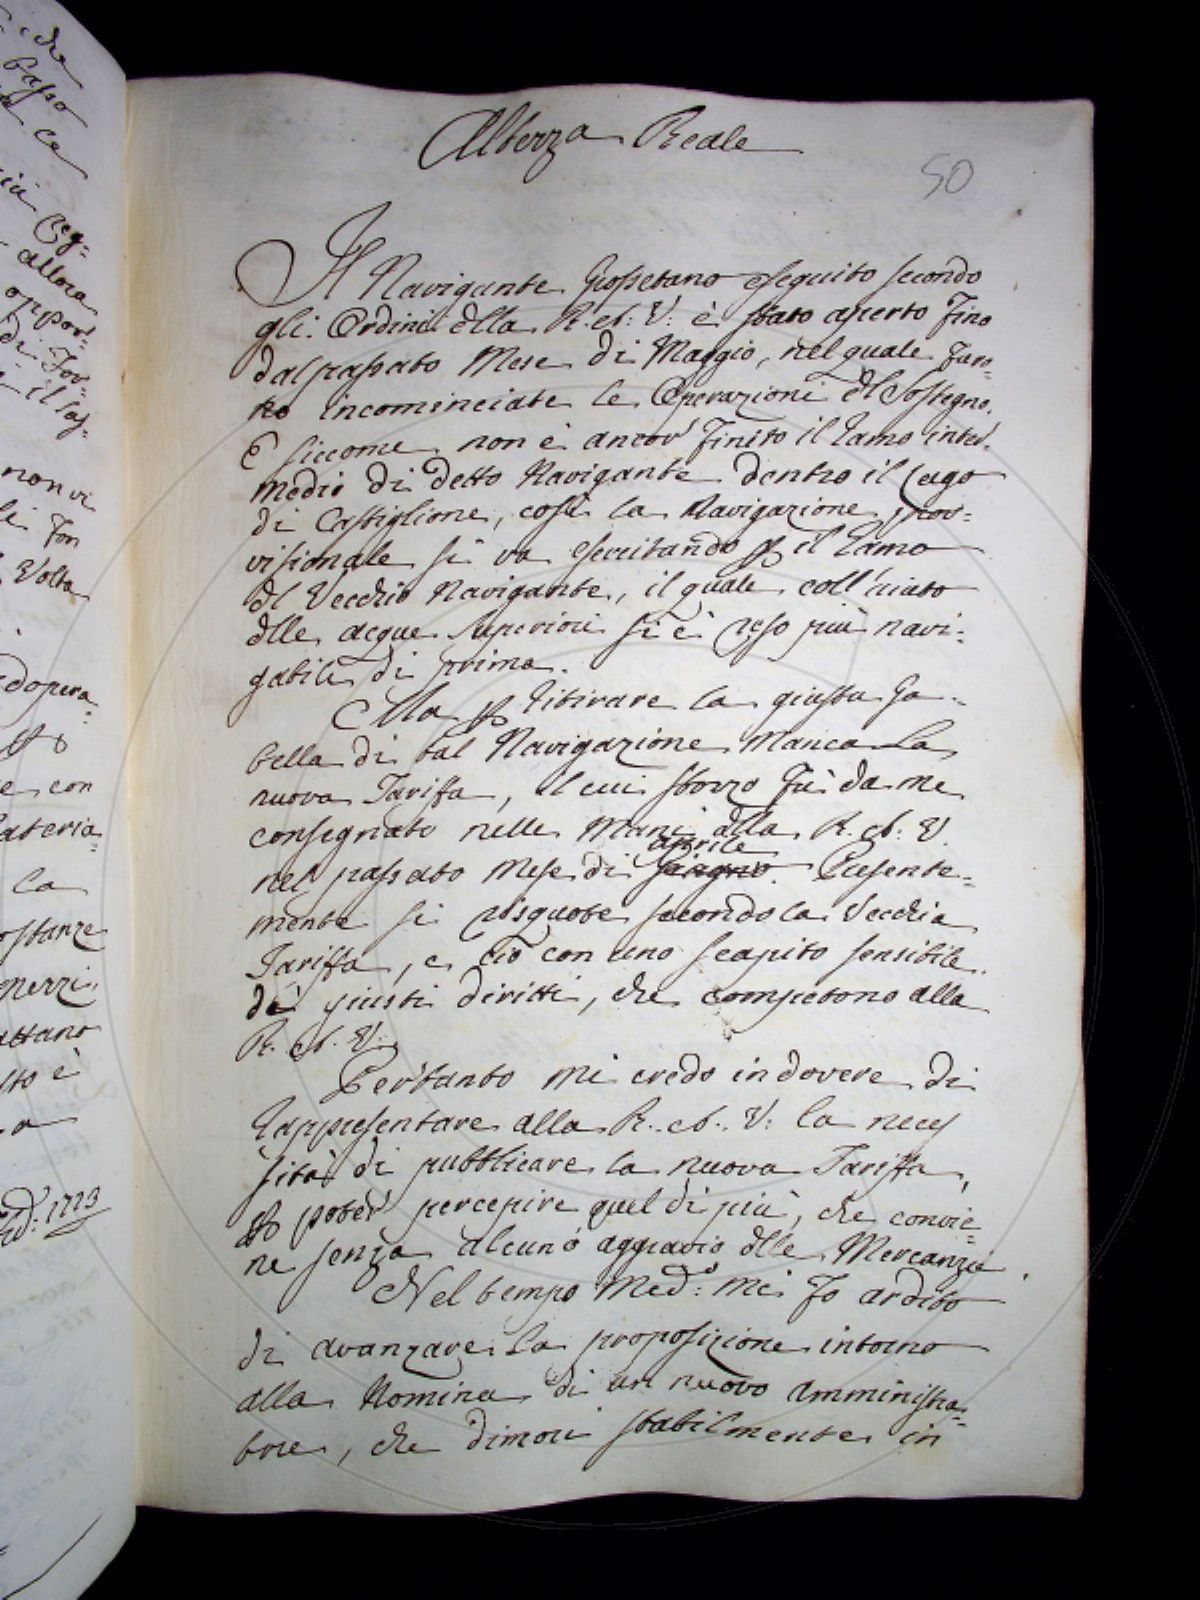 Altezza Reale
50
Il Navigante Grossetano eseguito secondo
gli Ordini della R. A: V: è stato aperto fino
dal passato Mese di Maggio, nel quale furo=
no incominciate le Operazioni del Sostegno.
E siccome non è ancor finito il Ramo inter=
medio di detto Navigante dentro il Lago
di Castiglione, così la Navigazione prov=
visionale si va esercitando p il Ramo
del Vecchio Navigante, il quale coll'aiuto
delle acque superiori si è reso più navi=
gabile di prima.
Ma p ritirare la giusta Ga=
bella di tal Navigazione manca la
nuova Tariffa, il cui sbozzo fù da me
consegnato nelle Mani della R. A: V.
aprile
nel passato Mese di Giugno. Presente=
mente si risquote secondo la Vecchia
Tariffa, e ciò con uno scapito sensibile
dei giusti diritti, che competono alla
R. A. V.
Pertanto mi credo in dovere di
rappresentare alla R. A. V: la neces
sità di pubblicare la nuova Tariffa,
poter percepire quel di più, che convie=
ne senza alcuno aggravio delle Mercanzie.
Nel tempo Med:o mi fo ardito
di avanzare la proposizione intorno
alla Nomina di un nuovo Amministra=
tore, che dimori stabilmente in